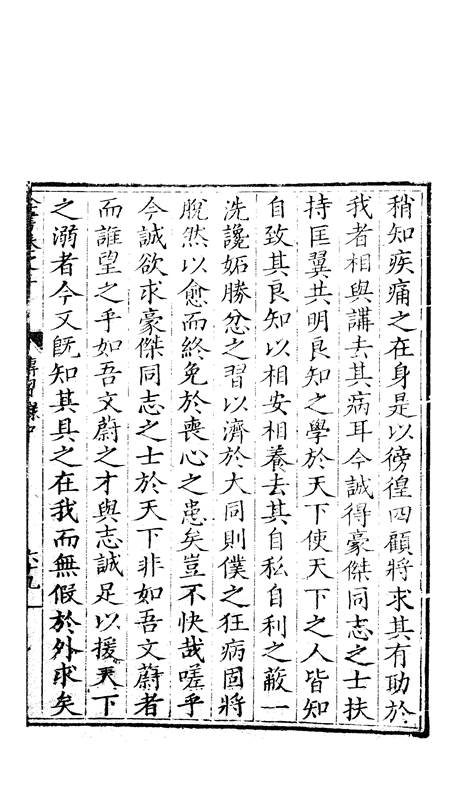 稍知疾痛之在身是以徬徨四顧將求其有助於
我者相與講去其病耳今誠得豪傑同志之士扶
持匡翼共明良知之學於天下使天下之人皆知
自致其良知以相安相養去其自私自利之蔽一
洗讒妬勝忿之習以濟於大同則僕之狂病固將
脫然以愈而終免於喪心之患矣豈不快哉嗟乎
今誠欲求豪傑同志之士於天下非如吾文蔚者
而誰望之乎如吾文蔚之才與志誠足以援天下
之溺者今又既知其具之在我而無假於外求矣
傳習錄中
六十九